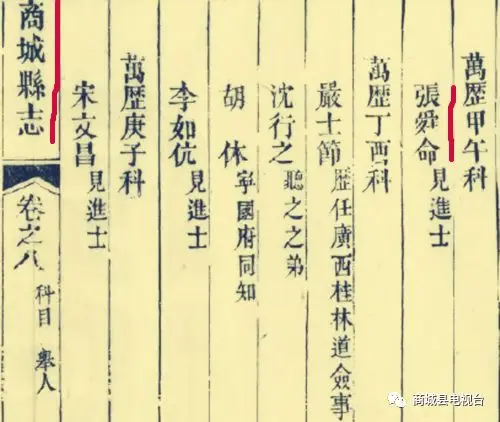 萬歷甲午科
張舜命見進士
萬歷丁酉科
嚴士節歷任廣西桂林道僉事
沈行之聽之之弟
胡休寧國府同知
李如伉見進士
萬歷庚子科
宋文昌見進士
商城縣志
卷之八
科目 舉人
商城县电视台